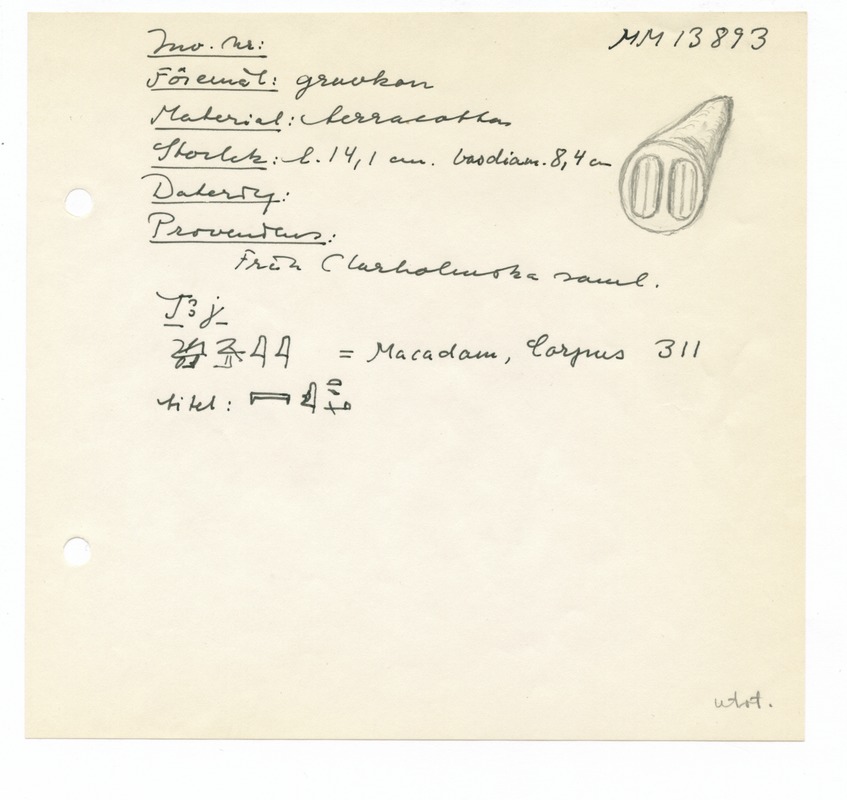 Inv. nr: MM 13893
Föremål: gravkon
Material: terracotta
Storlek: l. 14,1 cm. basdiam. 8,4 cm
Datering:
Proveniens:
Från Clarholmska saml.
T3j
= Macadam, Corpus 311
titel:
utst.